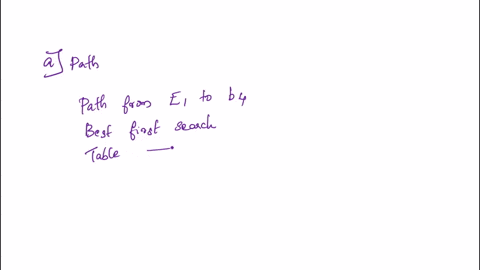 a] Path
Path from E1 to b4
Best first search
Table —